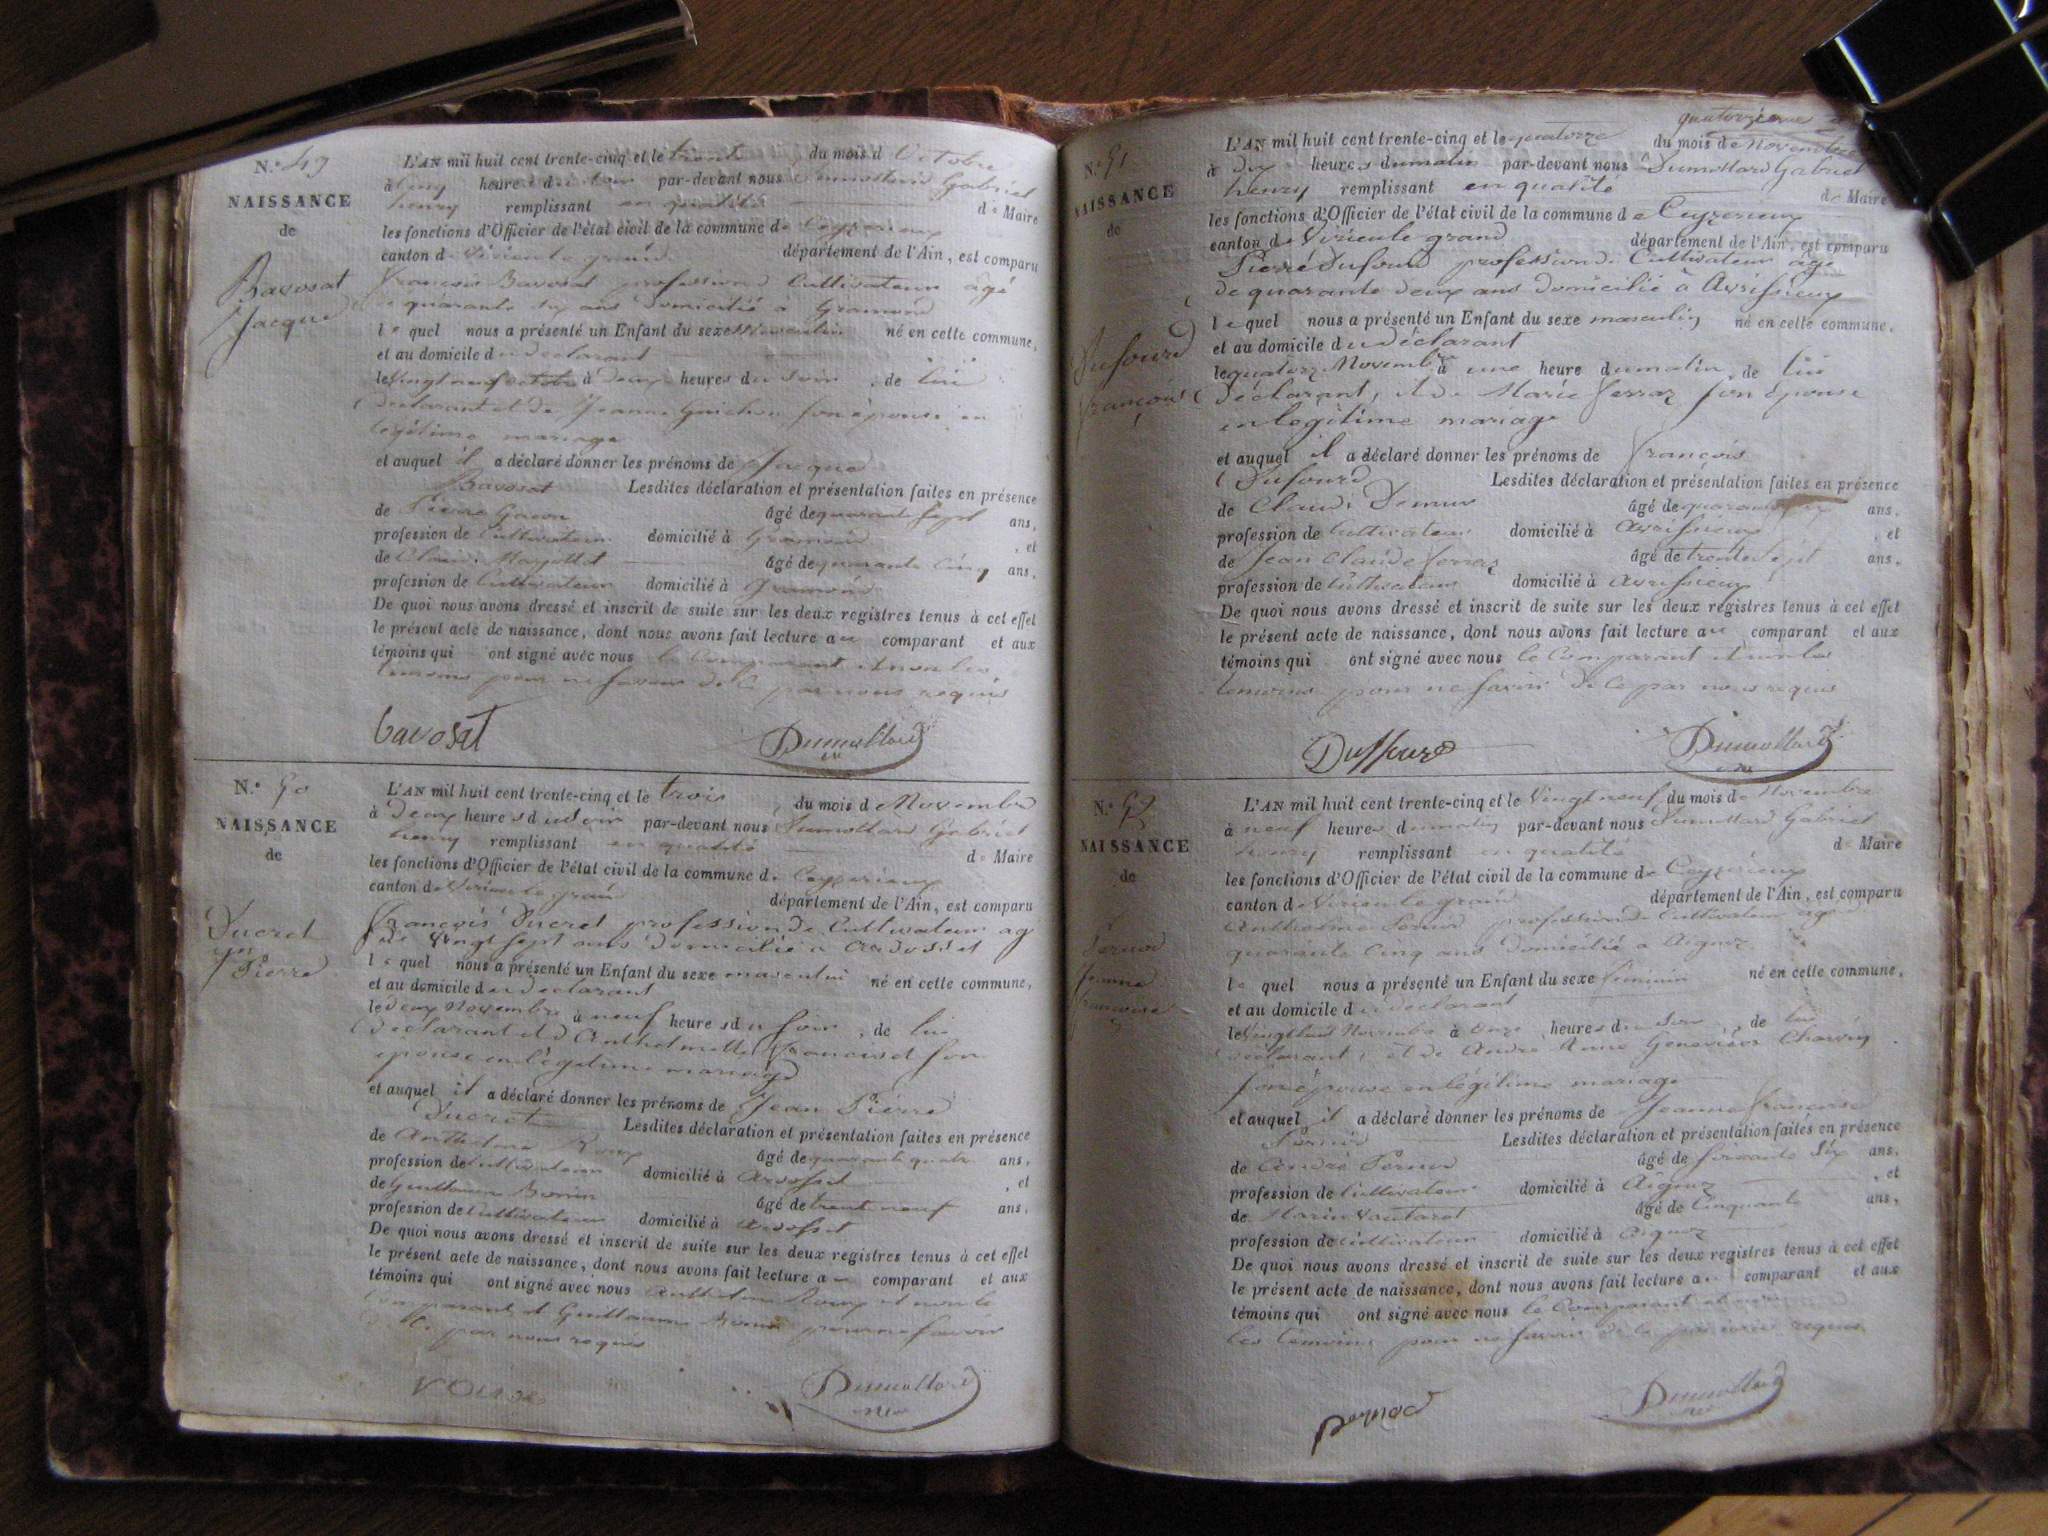 N.° 49
NAISSANCE
de
Bavosat
Jacque
L'AN mil huit cent trente-cinq et le trente du mois d Octobre
à cinq heures du soir par-devant nous Dumollard Gabriel
henry remplissant en qualité de Maire
les fonctions d'Officier de l'état civil de la commune de Ceyzerieux
canton de Virieu le grand département de l'Ain, est comparu
François Bavosat profession d Cultivateur âgé
de quarante six ans domicilié à Gramond
le quel nous a présenté un Enfant du sexe Masculin né en cette commune,
et au domicile du déclarant
le Vingt neuf octobre à deux heures du soir, de lui
déclarant et de Jeanne Guichon son épouse en
legitime mariage
et auquel il a déclaré donner les prénoms de Jacque
Bavosat Lesdites déclaration et présentation faites en présence
de Pierre âgé de quarante sept ans,
profession de Cultivateur domicilié à Gramond, et
de Claude âgé de quarante cinq ans,
profession de Cultivateur domicilié à Gramond
De quoi nous avons dressé et inscrit de suite sur les deux registres tenus à cet effet
le présent acte de naissance, dont nous avons fait lecture au comparant et aux
témoins qui ont signé avec nous le Comparant et non les
temoins pour ne savoir de ce par nous requis
bavosat Dumollard
N.° 50
NAISSANCE
de
Ducret
jn
Pierre
L'AN mil huit cent trente-cinq et le trois du mois de Novembre
à deux heures du soir par-devant nous Dumollard Gabriel
henry remplissant en qualité de Maire
les fonctions d'Officier de l'état civil de la commune de Ceyzerieux
canton de Virieu le grand département de l'Ain, est comparu
François Ducret profession de Cultivateur ag
de vingt sept ans domicilié à Ardosset
le quel nous a présenté un Enfant du sexe masculin né en cette commune,
et au domicile du declarant
le deux Novembre à neuf heures du soir, de lui
déclarant et d Anthelmette Franciset son
épouse en légitime mariage
et auquel il a déclaré donner les prénoms de Jean Pierre
Ducret Lesdites déclaration et présentation faites en présence
de Anthelme Roux âgé de quarante quatre ans,
profession de Cultivateur domicilié à Ardosset, et
de Guillaume âgé de trente neuf ans,
profession de Cultivateur domicilié à Ardosset
De quoi nous avons dressé et inscrit de suite sur les deux registres tenus à cet effet
le présent acte de naissance, dont nous avons fait lecture au comparant et aux
témoins qui ont signé avec nous Anthelme Roux et non le
comparant et Guillaume pour ne savoir
de ce par nous requis
Dumollard
N.° 51
NAISSANCE
de
Dufourd
françois
quatorzieme
L'AN mil huit cent trente-cinq et le quatorze du mois de Novembre
à dix heures du matin par-devant nous Dumollard Gabriel
henry remplissant en qualité de Maire
les fonctions d'Officier de l'état civil de la commune de Ceyzerieux
canton de Virieu le grand département de l'Ain, est comparu
Pierre Dufourd profession de Cultivateur âgé
de quarante deux ans domicilié à Avrissieux
le quel nous a présenté un Enfant du sexe masculin né en cette commune,
et au domicile du déclarant
le quatorze Novembre à une heure du matin, de lui
déclarant, et de Marie ferraz son épouse
en legitime mariage
et auquel il a déclaré donner les prénoms de françois
Dufourd Lesdites déclaration et présentation faites en présence
de Claude Demur âgé de ans,
profession de Cultivateur domicilié à Avrissieux, et
de Jean Claude ferraz âgé de trente sept ans,
profession de Cultivateur domicilié à Avrissieux
De quoi nous avons dressé et inscrit de suite sur les deux registres tenus à cet effet
le présent acte de naissance, dont nous avons fait lecture au comparant et aux
témoins qui ont signé avec nous le Comparant et non les
temoins pour ne savoir de ce par nous requis
Duffourd Dumollard
N.° 52
NAISSANCE
de
Pernod
Jeanne
francoise
L'AN mil huit cent trente-cinq et le Vingt neuf du mois de Novembre
à neuf heures du matin par-devant nous Dumollard Gabriel
henry remplissant en qualité de Maire
les fonctions d'Officier de l'état civil de la commune de Ceyzérieux
canton de Virieu le grand département de l'Ain, est comparu
Anthelme Pernod profession de Cultivateur age
quarante cinq ans domicilié à Aignoz
le quel nous a présenté un Enfant du sexe feminin né en cette commune,
et au domicile du declarant
le Vingt huit Novembre à onze heures du soir, de lui
declarant, et de André Anne Geneviève Charvin
son épouse en légitime mariage
et auquel il a déclaré donner les prénoms de Jeanne françoise
Pernod Lesdites déclaration et présentation faites en présence
de André Pernod âgé de soixante six ans,
profession de Cultivateur domicilié à Aignoz, et
de Marin Vautaret âgé de Cinquante ans,
profession de Cultivateur domicilié à Aignoz
De quoi nous avons dressé et inscrit de suite sur les deux registres tenus à cet effet
le présent acte de naissance, dont nous avons fait lecture au comparant et aux
témoins qui ont signé avec nous le Comparant et non
les temoins pour ne savoir de ce par nous requis
pernod Dumollard